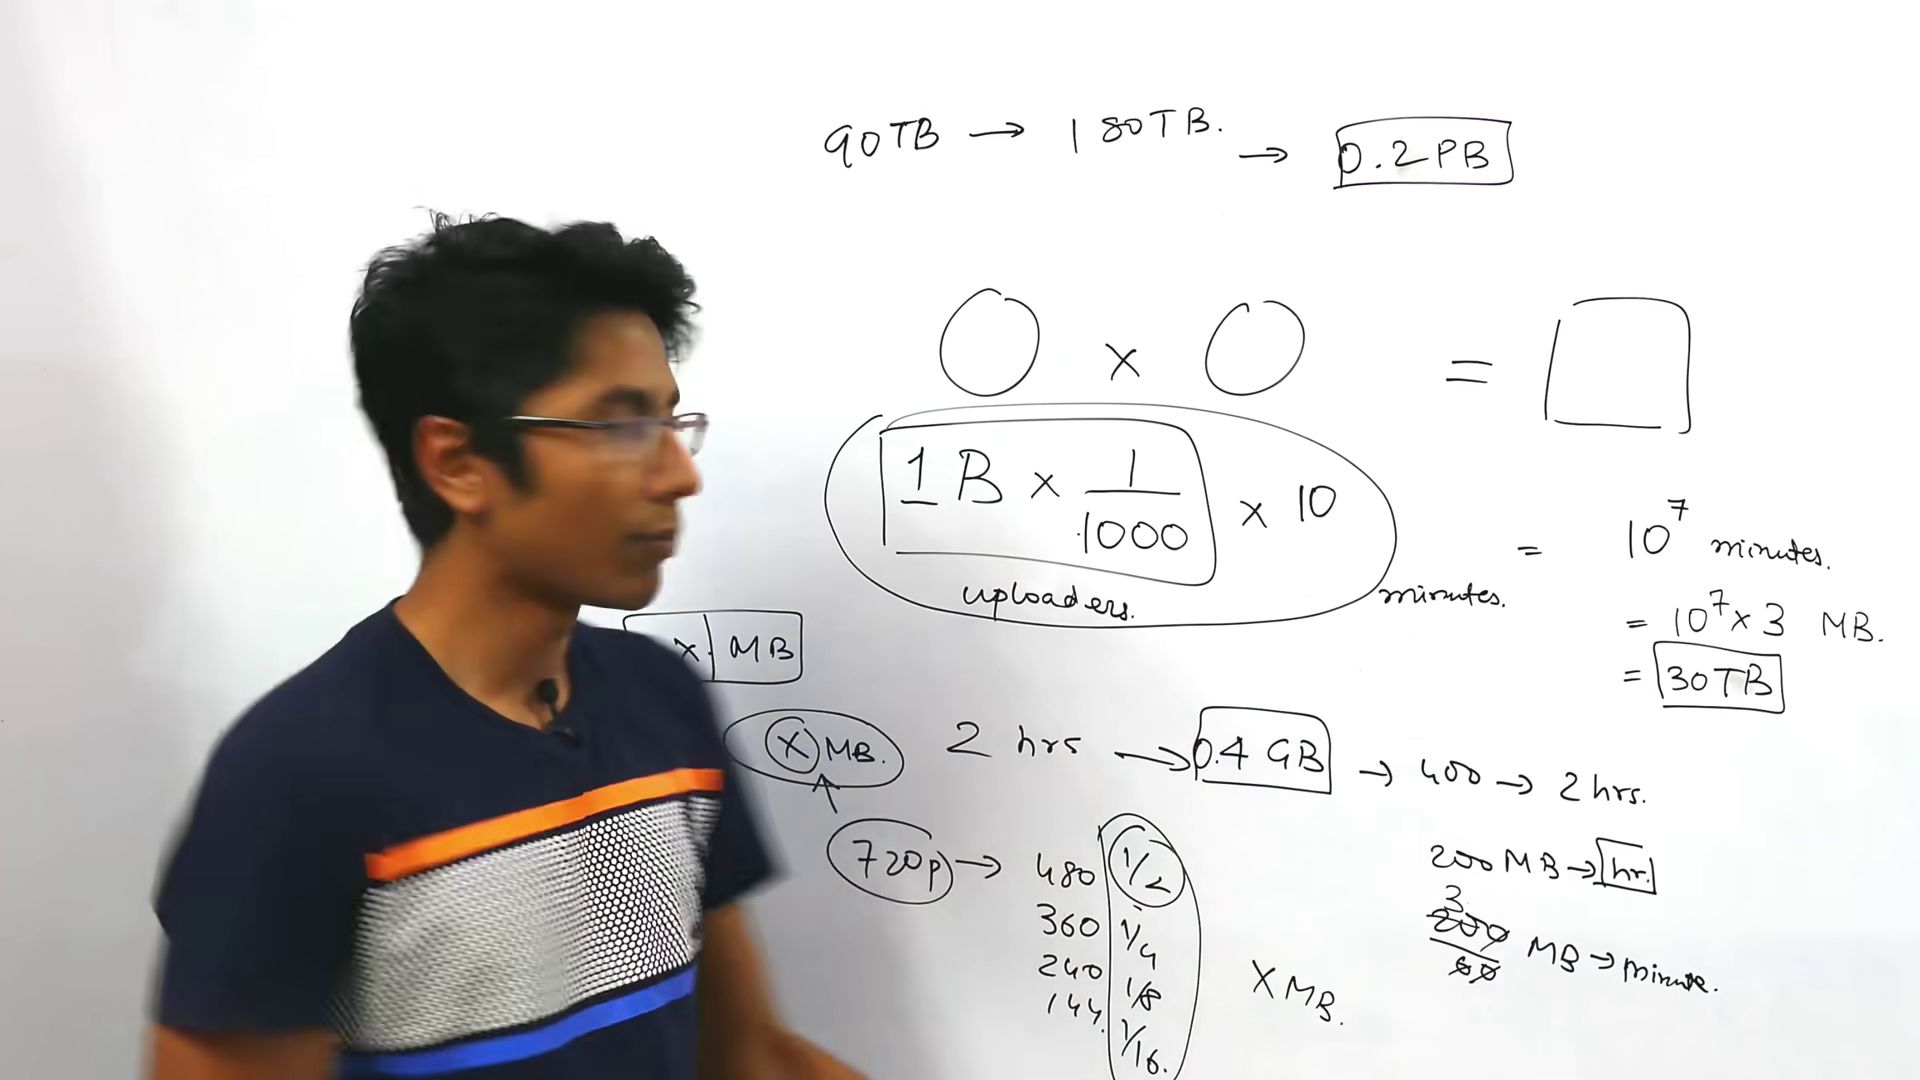 90TB → 180TB. → 0.2PB
× =
1B × 1/1000 × 10 minutes. = 10^7 minutes.
uploaders.
= 10^7 × 3 MB.
= 30TB
x. MB
X MB. 2 hrs → 0.4 GB → 400 → 2 hrs.
720p → 480 1/2
360 1/4
240 1/8
144. 1/16.
X MB.
200 MB → hr.
3
200/60 MB → minute.